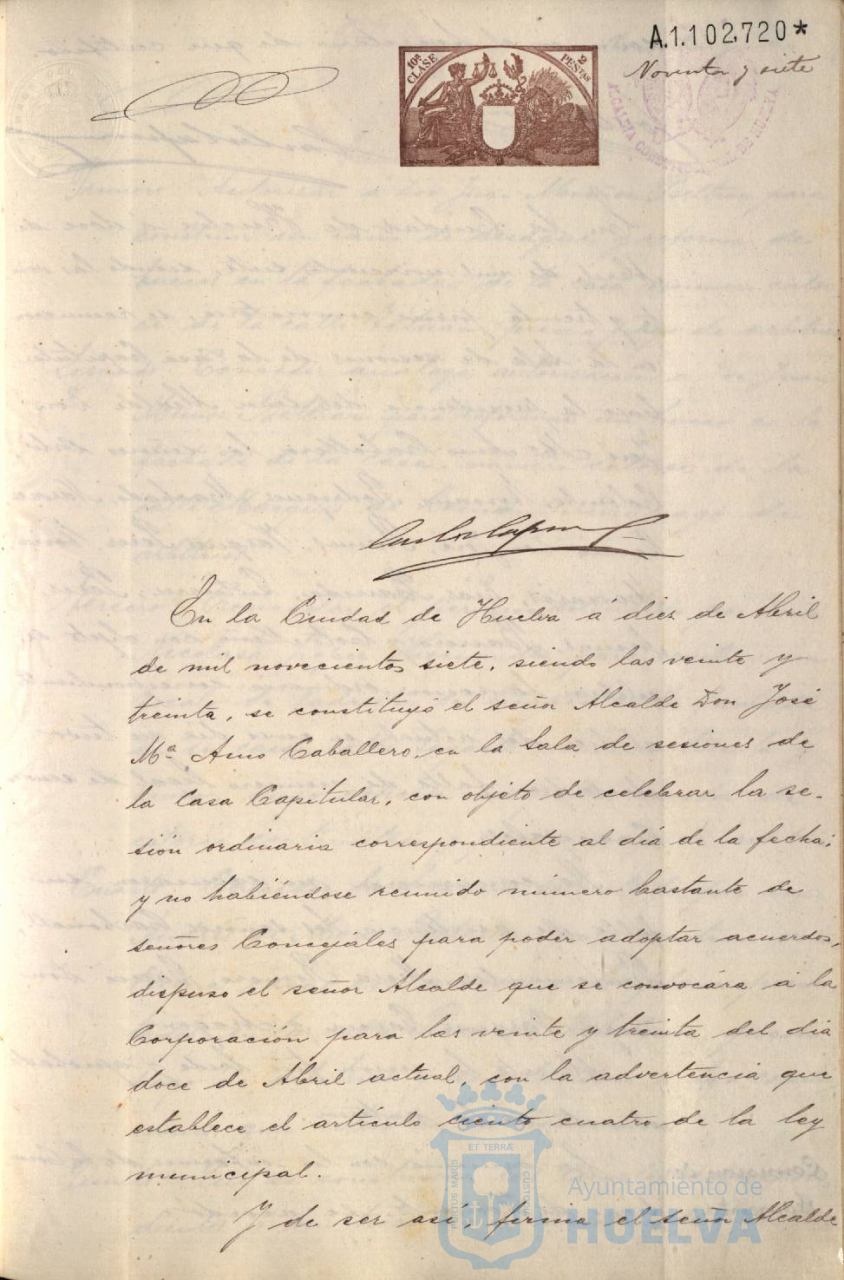 A.1.102.720*
Noventa y siete
10ª CLASE
2 PESETAS
En la Ciudad de Huelva á diez de Abril
de mil novecientos siete, siendo las veinte y
treinta, se constituyó el señor Alcalde Don José
Mª Amo Caballero, en la Sala de sesiones de
la Casa Capitular, con objeto de celebrar la se-
sión ordinaria correspondiente al día de la fecha;
y no habiéndose reunido número bastante de
señores Concejales para poder adoptar acuerdos,
dispuso el señor Alcalde que se convocára á la
Corporación para las veinte y treinta del día
doce de Abril actual, con la advertencia que
establece el artículo ciento cuatro de la ley
municipal.
Y de ser así, firma el señor Alcalde
Ayuntamiento de
HUELVA